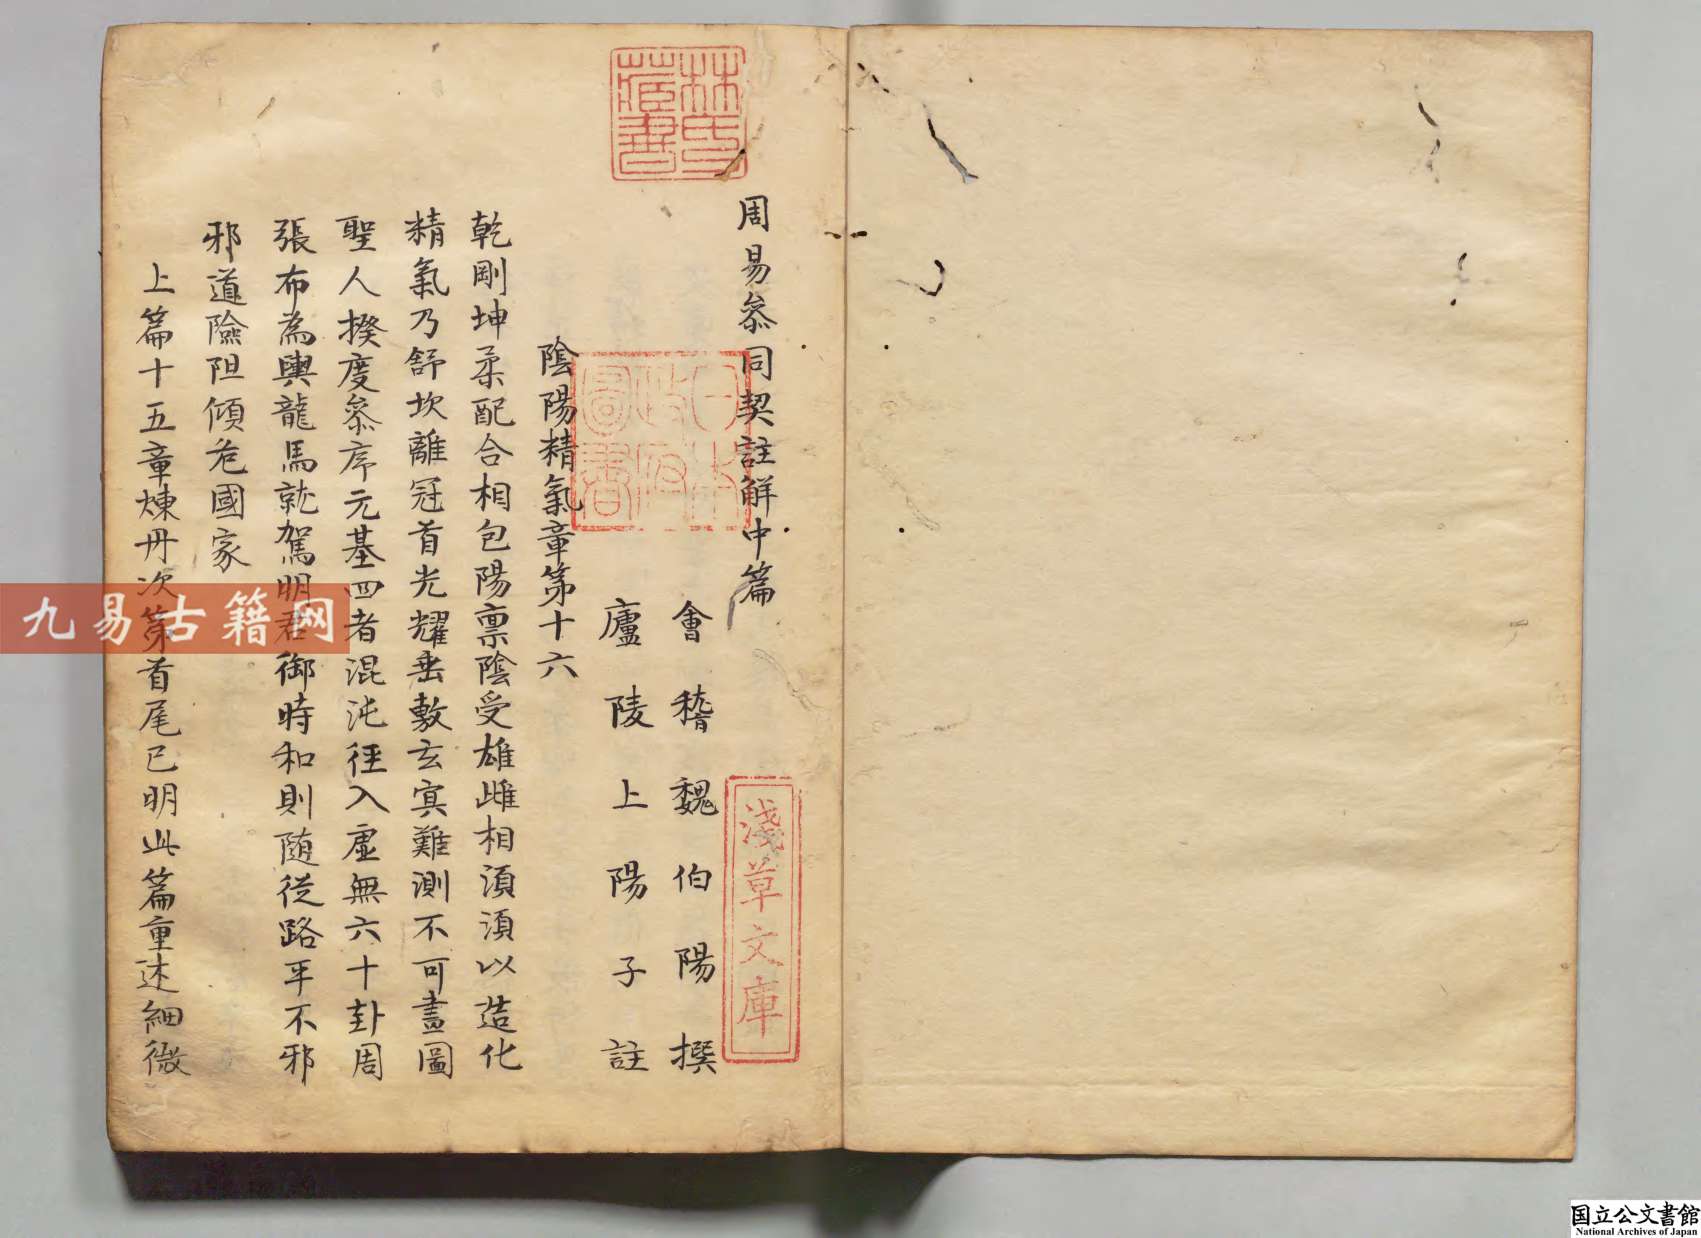 周易叅同契註解中篇
會稽魏伯陽撰
廬陵上陽子註
陰陽精氣章第十六
乾剛坤柔配合相包陽禀陰受雄雌相湏湏以造化
精氣乃舒坎離冠首光耀垂敷玄冥難測不可畫圖
聖人揆度叅序元基四者混沌徑入虛無六十卦周
張布為輿龍馬就駕明君御時和則随從路平不邪
邪道險阻傾危國家
上篇十五章煉丹次第首尾已明此篇重述細微
林氏
藏書
日本
政府
圖書
淺草文庫
九易古籍网
国立公文書館
National Archives of Japan